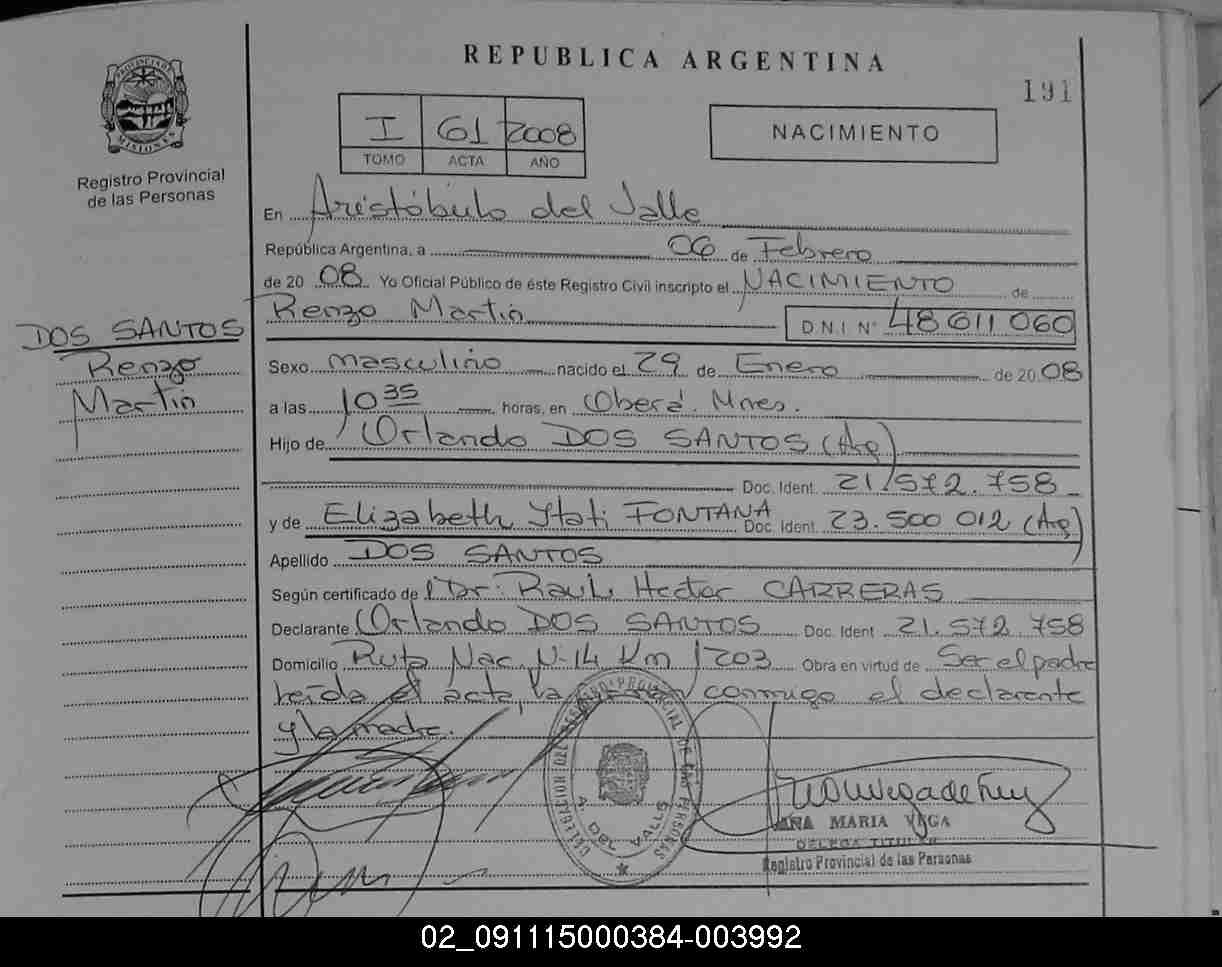 REPUBLICA ARGENTINA
191
PROVINCIA DE MISIONES
Registro Provincial
de las Personas
I 61 2008
TOMO ACTA AÑO
NACIMIENTO
En Aristóbulo del Valle
República Argentina, a 06 de Febrero
de 20 08 Yo Oficial Público de éste Registro Civil inscripto el NACIMIENTO de
Renzo Martin D.N.I N° 48 611 060
DOS SANTOS
Renzo
Martin
Sexo masculino nacido el 29 de Enero de 20 08
a las 10 35 horas, en Oberá. Mnes.
Hijo de Orlando DOS SANTOS (Arg)
Doc. Ident. 21.572.758
y de Elizabeth Itati FONTANA Doc. Ident. 23.500 012 (Arg)
Apellido DOS SANTOS
Según certificado de Dr. Raul Hector CARRERAS
Declarante Orlando DOS SANTOS Doc. Ident 21.572.758
Domicilio Ruta Nac. N-14 Km 1203 Obra en virtud de Ser el padre
leída el acta, la conmigo el declarante
y la madre.
DELEGACION DEL REGISTRO PROVINCIAL DE LAS PERSONAS
A. DEL VALLE
ANA MARIA VEGA
DELEGA TITULAR
Registro Provincial de las Personas
02_091115000384-003992